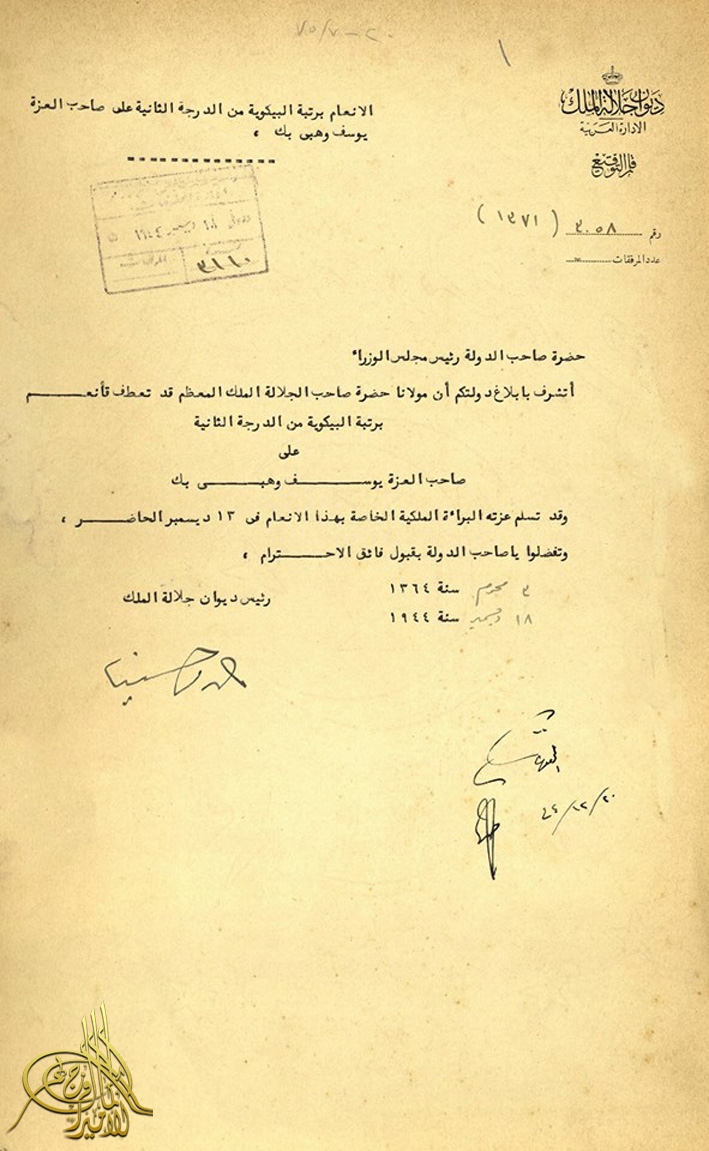 ديوان جلالة الملك
الادارة العربية
قلم التوقيع
رقم ٣٠٥٨ (١٣٧١)
عدد المرفقات
الانعام برتبة البيكوية من الدرجة الثانية على صاحب العزة
يوسف وهبى بك ،
ديسمبر ١٩٤٤
المرفقات
٣١١٠
حضرة صاحب الدولة رئيس مجلس الوزراء
أتشرف بابلاغ دولتكم أن مولانا حضرة صاحب الجلالة الملك المعظم قد تعطف فأنعم
برتبة البيكوية من الدرجة الثانية
على
صاحب العزة يوسف وهبى بك
وقد تسلم عزته البراءة الملكية الخاصة بهذا الانعام فى ١٣ ديسمبر الحاضر ،
وتفضلوا ياصاحب الدولة بقبول فائق الاحترام ،
٣ محرم سنة ١٣٦٤
١٨ ديسمبر سنة ١٩٤٤
رئيس ديوان جلالة الملك
٢٠/١٢/٤٤